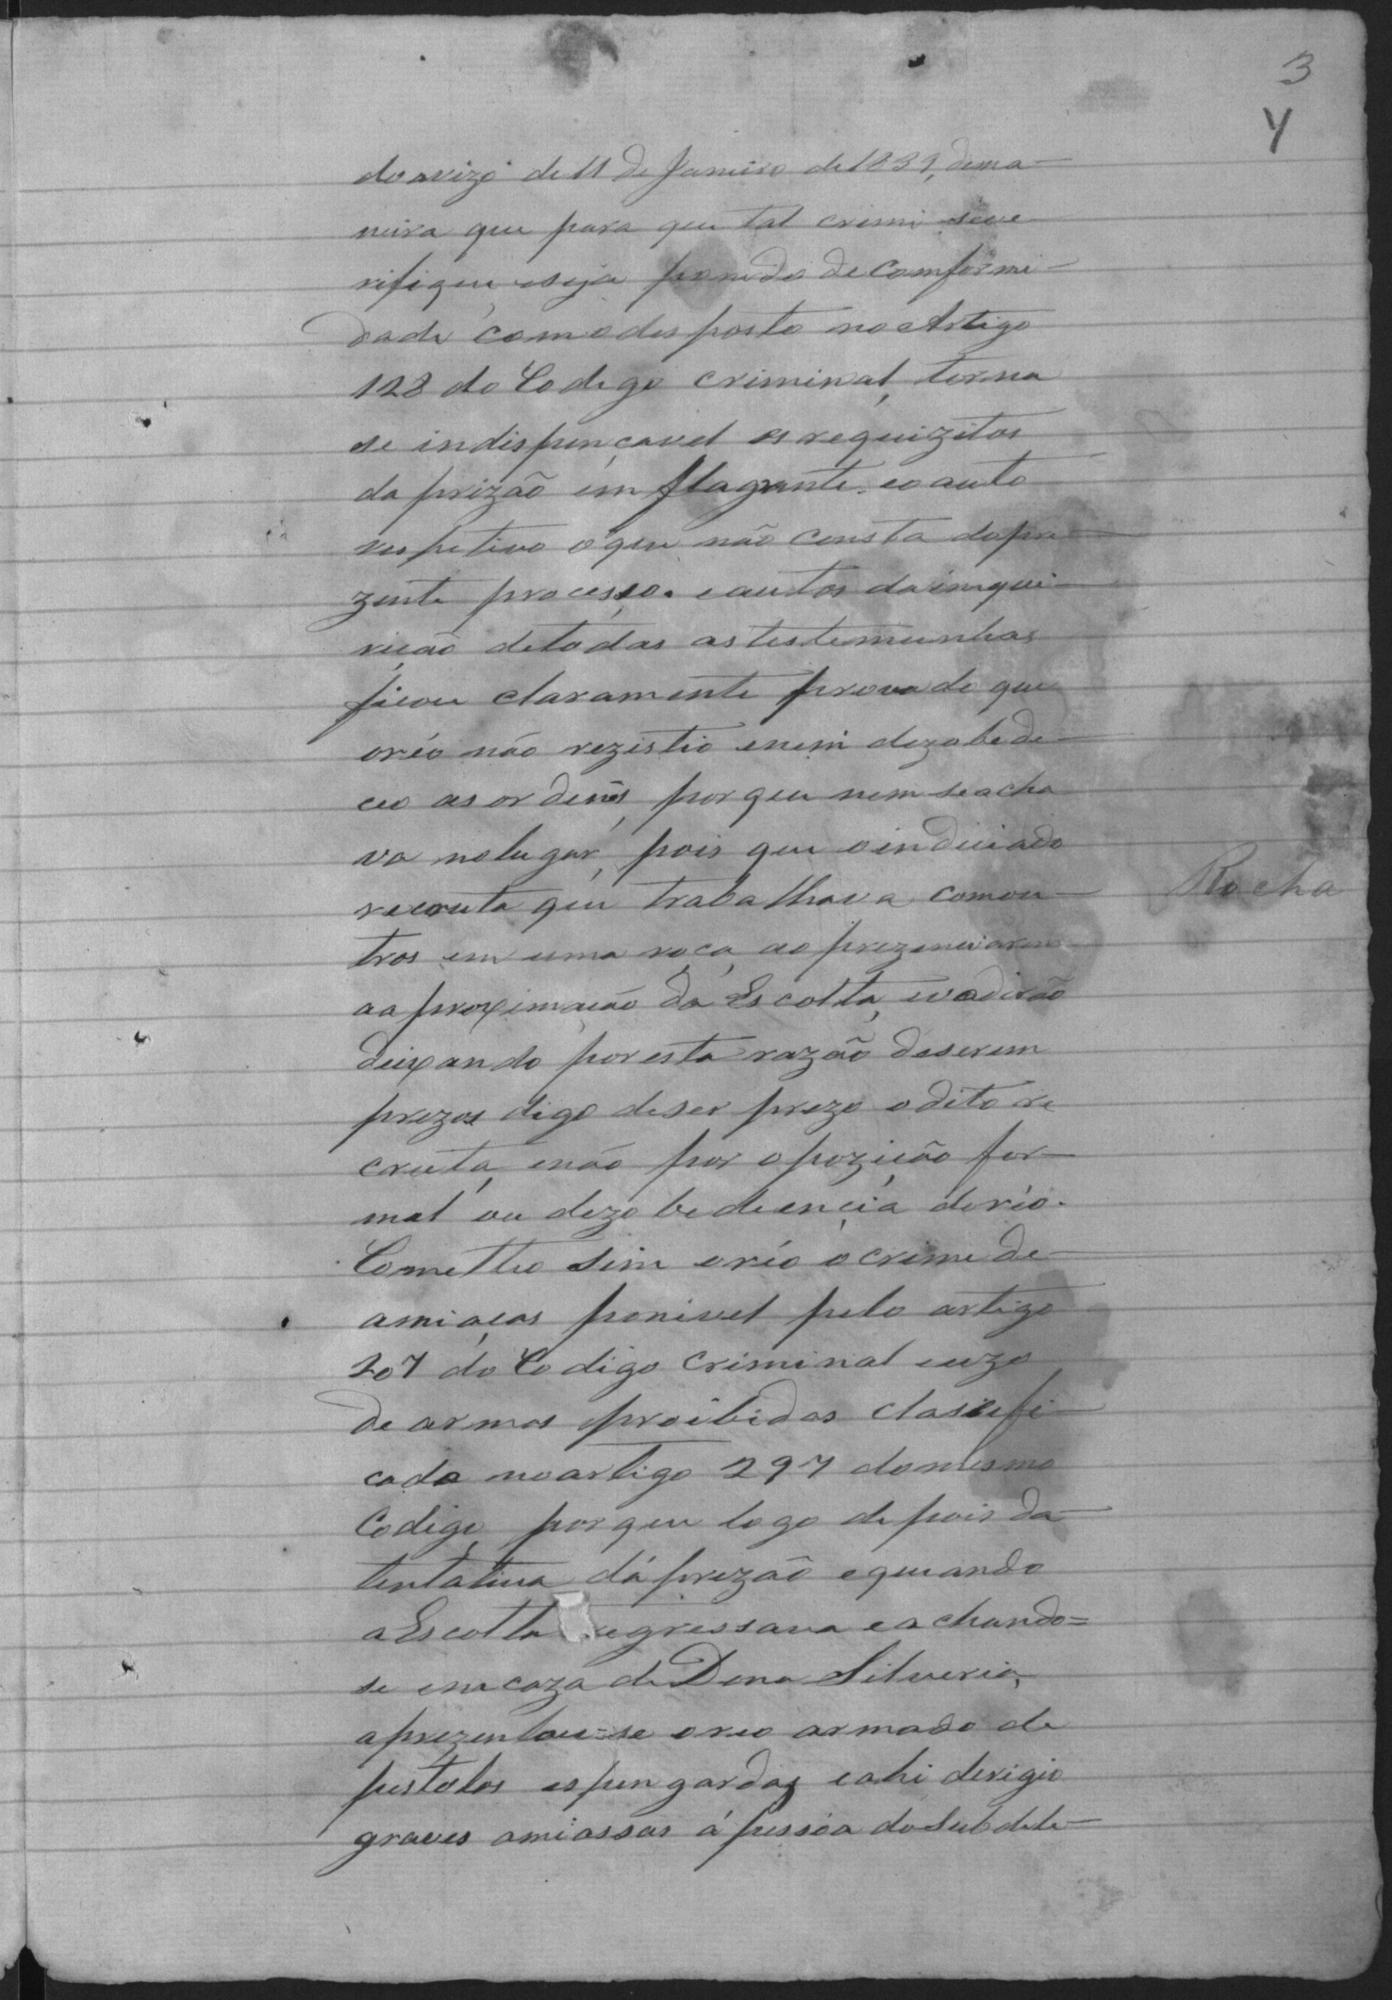 3
4
do avizo de 11 de Janeiro de 1839, dema-
neira que para que tal crime seve-
rifique, eseja ponido de comformi-
dade como desposto no Artigo
128 do Codego criminal, torna
se indispençavel os requizitos
da prizão em flagrante, eo auto
respetivo o que não consta do pre-
zente processo. e autos da inqui-
rição de todas as testemunhas
ficou claramente provado que
oréo não rezistio enem dezobede-
ceo as ordens, por que nem se acha
va no lugar, pois que o indiciado
recruta que trabalhava com ou-
tros em uma roça, ao prezenciarem
a aproximação da Escolta, evadirão
deixando por esta razão deserem
prezos digo deser prezo o dito re
cruta, enão por opozição for-
mal ou dezobediencia do réo.
Cometteo sim o réo o crime de
amiaças ponivel pelo artigo
207 do Codigo Criminal euzo
de armas proibidas clasifi-
cado no artigo 297 do mesmo
Codigo, por que logo depois da
tentativa da prizão e quando
a Escolta regressava e achando=
se em caza de Dona Silveria,
aprezentou-se o reo armado de
pistolas espengardas, e ahi derigio
graves amiassas á pessoa do Subdele-
Rocha